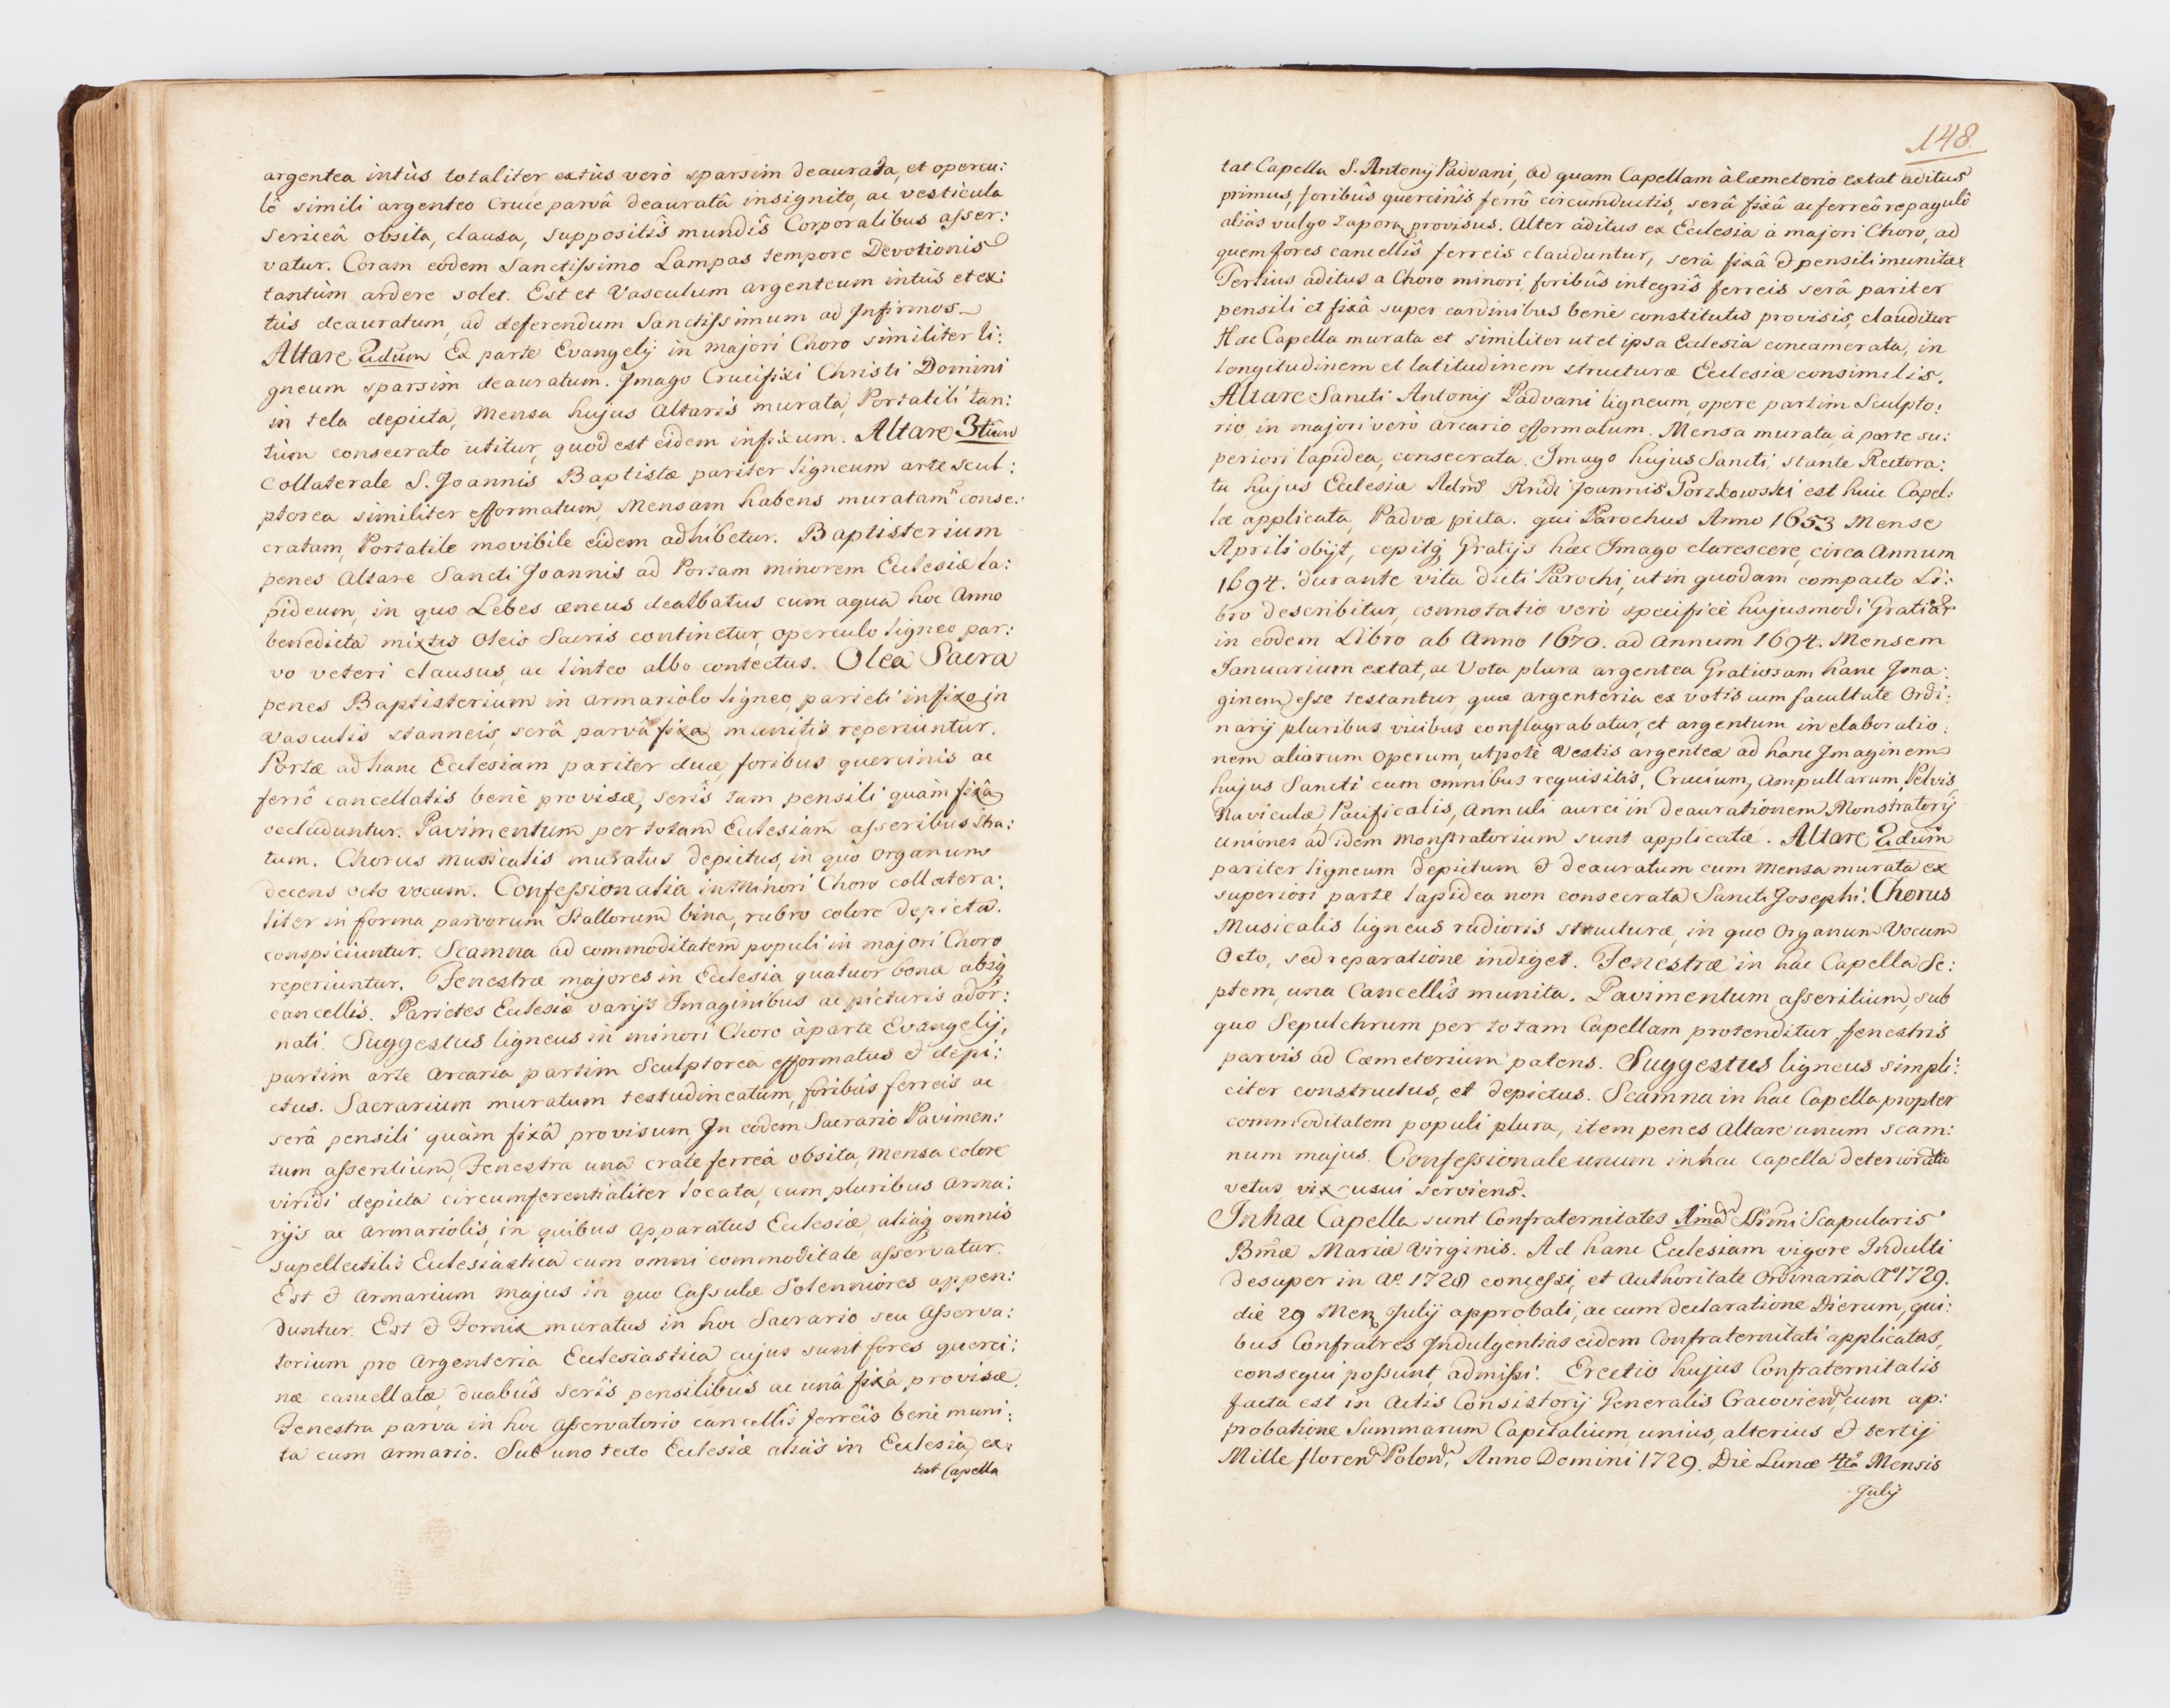 argentea intùs totaliter extùs verò sparsim deaurata, et opercu:
lô simili argenteo Cruce parvâ deauratâ insignito, ac vesticula
sericeâ obsita, clausa, suppositîs mundîs Corporalibus asser:
vatur. Coram eodem Sanctissimo Lampas tempore Devotionis
tantùm ardere solet. Est et Vasculum argenteum intùs et ex:
tùs deauratum, ad deferendum Sanctissimum ad Infirmos
Altare 2dum Ex parte Evangelij in majori Choro similiter li:
gneum sparsim deauratum. Imago Crucifixi Christi Domini
in tela depicta, Mensa hujus Altaris murata, Portatili tan:
tùm consecrato utitur, quod est eidem infixum. Altare 3tium
Collaterale S. Joannis Baptistæ pariter ligneum arte scul:
ptorea similiter efformatum, Mensam habens muratam conse:
cratam, Portatile movibile eidem adhibetur. Baptisterium
penes Altare Sancti Joannis ad Portam minorem Ecclesiæ la:
pideum, in quo Lebes æneus dealbatus cum aqua hoc Anno
benedicta mixtis Oleis Sacris continetur, operculo ligneo par:
vo veteri clausus, ac linteo albo contectus. Olea Sacra
penes Baptisterium in armariolo ligneo parieti infixo in
vasculis stanneis, serâ parvâ fixa munitis reperiuntur.
Portæ ad hanc Ecclesiam pariter duæ, foribus quercinis ac
ferrô cancellatis benè provisæ, serîs tam pensili quàm fixâ
occluduntur. Pavimentum per totam Ecclesiam asseribus stra:
tum. Chorus musicalis muratus depictus, in quo Organum
decens octo vocum. Confessionalia in Minori Choro collatera:
liter in forma parvorum Stallorum bina, rubro colore depicta.
conspiciuntur. Scamna ad commoditatem populi in majori Choro
reperiuntur. Fenestræ majores in Ecclesia quatuor bonæ absq
cancellis. Parietes Ecclesiæ varijs Imaginibus ac picturis ador:
nati. Suggestus ligneus in minori Choro à parte Evangelij,
partim arte Arcaria partim Sculptorea efformatus & depi:
ctus. Sacrarium muratum testudineatum, foribus ferreis ac
serâ pensili quàm fixâ provisum, In eodem Sacrario Pavimen:
tum asseritium, Fenestra una crate ferreâ obsita, mensa colore
viridi depicta circumferentialiter locata, cum pluribus Arma:
rijs ac Armariolis, in quibus Apparatus Ecclesiæ, aliaq omnis
supellectilis Ecclesiastica cum omni commoditate asservatur.
Est & Armarium majus in quo Cassulæ Solenniores appen:
duntur. Est & Fornix muratus in hoc Sacrario seu Asserva:
torium pro Argenteria Ecclesiastica cujus sunt fores querci:
næ cancellatæ, duabus serîs pensilibus ac unâ fixâ provisæ.
Fenestra parva in hoc Asservatorio cancellîs ferreîs benè muni:
ta cum armario. Sub uno tecto Ecclesiæ aliàs in Ecclesia, ex:
tat Capella
148.
tat Capella S. Antonij Paduani, ad quam Capellam à Cæmeterio extat aditus
primus, foribus quercinîs ferrô circumductis, serâ fixâ ac ferreô repagulô
aliàs vulgo zapora provisus. Alter aditus ex Ecclesia à majori Choro, ad
quem fores cancellîs ferreis clauduntur, serâ fixâ & pensili munitæ
Tertius aditus a Choro minori, foribus integrîs ferreis serâ pariter
pensili et fixâ super cardinibus benè constitutis provisis, clauditur
Hæc Capella murata et similiter ut et ipsa Ecclesia concamerata, in
longitudinem et latitudinem structuræ Ecclesiæ consimilis.
Altare Sancti Antonij Paduani ligneum, opere partim Sculpto:
rio, in majori verò arcario efformatum. Mensa murata, à parte su:
periori lapidea, consecrata. Imago hujus Sancti, stante Rectora:
tu hujus Ecclesiæ Admd Rndi Joannis Porzkowski est huic Capel:
læ applicata, Paduæ picta. qui Parochus Anno 1653 Mense
Aprili obijt, cepitq Gratijs hæc Imago clarescere, circa Annum
1694. durante vita dicti Parochi, ut in quodam compacto Li:
bro describitur, connotatio verò specificè hujusmodi Gratiar
in eodem Libro ab Anno 1670. ad Annum 1694. Mensem
Januarium extat, ac Vota plura argentea Gratiosam hanc Ima:
ginem esse testantur, quæ argenteria ex votis cum facultate Ordi:
narij pluribus vicibus conflagrabatur, et argentum in elaboratio:
nem aliorum Operum, utpotè Vestis argenteæ ad hanc Imaginem
hujus Sancti cum omnibus requisitis, Crucium, Ampullarum, Pelvis
Naviculæ, Pacificalis, Annuli aurei in deaurationem Monstratorij
uniones ad idem Monstratorium sunt applicatæ. Altare 2dum
pariter ligneum depictum & deauratum cum Mensa murata ex
superiori parte lapidea non consecrata Sancti Josephi. Chorus
Musicalis ligneus rudioris structuræ, in quo Organum Vocum
Octo, sed reparatione indiget. Fenestræ in hac Capella Se:
ptem, una Cancellîs munita. Pavimentum asseritium, sub
quo Sepulchrum per totam Capellam protenditur, fenestris
parvis ad Cæmeterium patens. Suggestus ligneus simpli:
citer constructus, et depictus. Scamna in hac Capella propter
commoditatem populi plura, item penes Altare unum scam:
num majus. Confessionale unum in hac Capella deterioratu
vetus vix usui serviens.
In hac Capella sunt Confraternitates Scapularis
Bmæ Mariæ Virginis. Ad hanc Ecclesiam vigore Indulti
desuper in Ao. 1728 concessi, et Authoritate Ordinaria Ao 1729.
die 29 Men July approbati, ac cum declaratione Dierum, qui:
bus Confratres Indulgentias eidem Confraternitati applicatas,
consequi possunt, admissi. Erectio hujus Confraternitatis
facta est in Actis Consistorij Generalis Cracovien, cum ap:
probatione Summarum Capitalium unius, alterius & tertij
Mille floren Polon, Anno Domini 1729. Die Lunæ 4ta Mensis
July